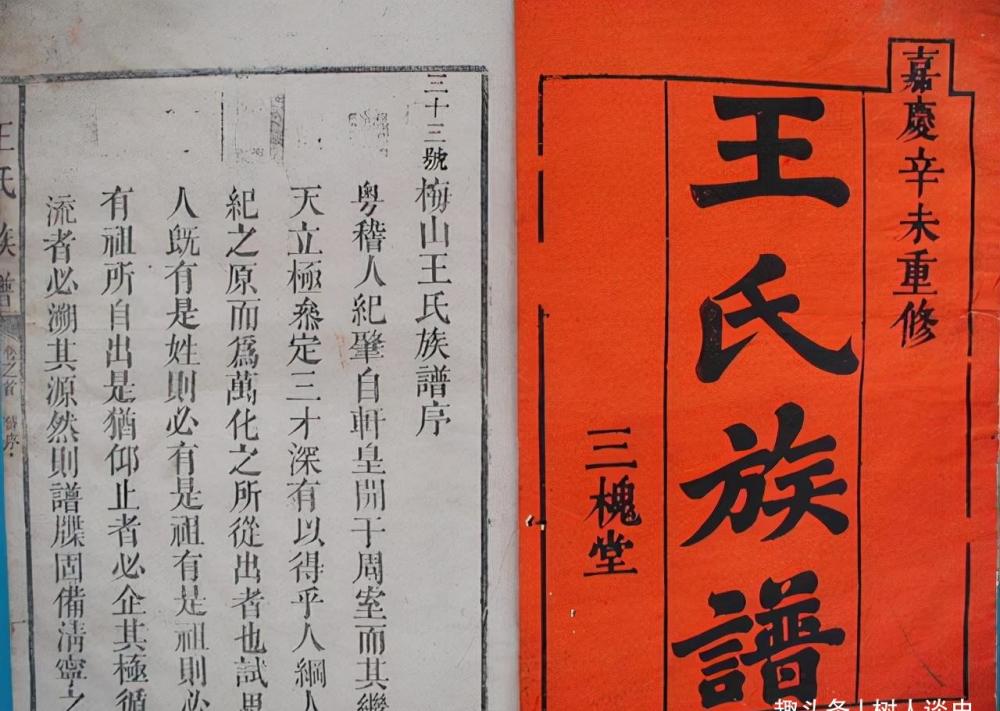 嘉慶辛未重修
王氏族譜
三槐堂
三十三號
梅山王氏族譜序
粤稽人紀肇自軒皇開于周室而其繼
天立極叅定三才深有以得乎人綱人
紀之原而爲萬化之所從出者也試思
人旣有是姓則必有是祖有是祖則必
有祖所自出是猶仰止者必企其極循
流者必溯其源然則譜牒固備清寧之
王氏族譜
卷之首
趣头条 | 树人谈史